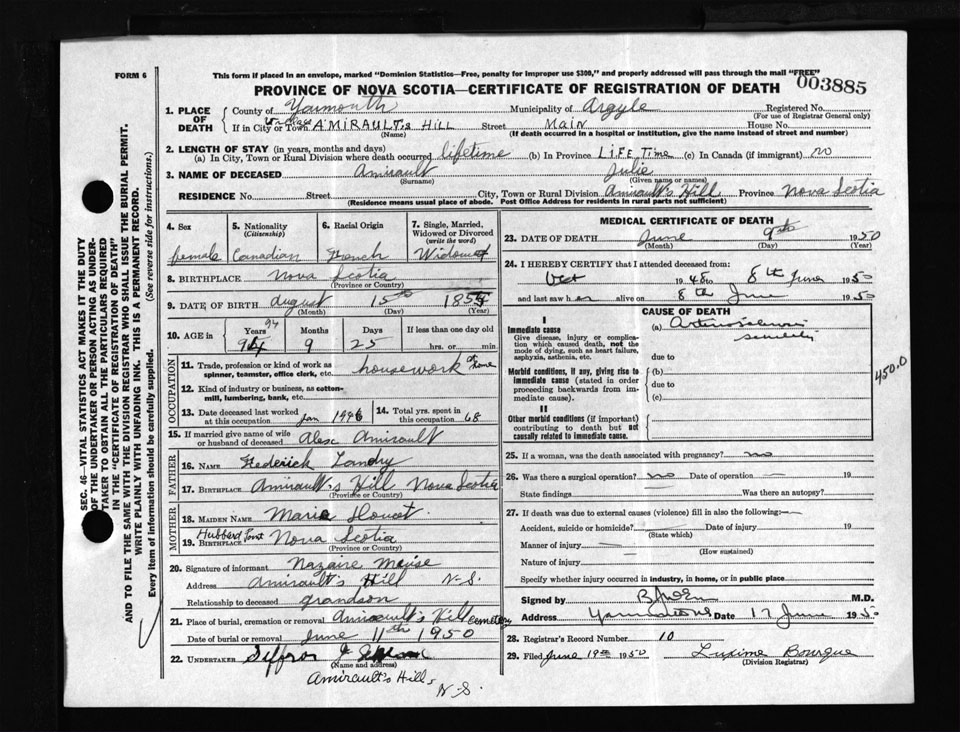 FORM 6
This form if placed in an envelope, marked "Dominion Statistics—Free, penalty for improper use $300," and properly addressed will pass through the mail "FREE"
003885
PROVINCE OF NOVA SCOTIA—CERTIFICATE OF REGISTRATION OF DEATH
1. PLACE OF DEATH { County of Yarmouth Municipality of Argyle Registered No.
(For use of Registrar General only)
If in City or Town AMIRAULT,s HILL Street Main House No.
(Name) (If death occurred in a hospital or institution, give the name instead of street and number)
2. LENGTH OF STAY (in years, months and days)
(a) In City, Town or Rural Division where death occurred lifetime (b) In Province LIFE Time (c) In Canada (if immigrant) no
3. NAME OF DECEASED Amirault Julie
(Surname) (Given name or names)
RESIDENCE No. Street City, Town or Rural Division Amirault's Hill Province Nova Scotia
(Residence means usual place of abode. Post Office Address for residents in rural parts not sufficient)
4. Sex 5. Nationality 6. Racial Origin 7. Single, Married, Widowed or Divorced
(Citizenship) (write the word)
female Canadian French Widowed
8. BIRTHPLACE Nova Scotia
(Province or Country)
9. DATE OF BIRTH August 15th
(Month) (Day) (Year)
10. AGE in { Years Months Days If less than one day old
94 9 25 hrs. or min.
OCCUPATION
11. Trade, profession or kind of work as spinner, teamster, office clerk, etc. housework at home
12. Kind of industry or business, as cotton-mill, lumbering, bank, etc.
13. Date deceased last worked at this occupation Jan 1946 14. Total yrs. spent in this occupation 68
15. If married give name of wife or husband of deceased Alex Amirault
FATHER
16. NAME Frederick Landry
17. BIRTHPLACE Amirault's Hill Nova Scotia
(Province or Country)
MOTHER
18. MAIDEN NAME Marie
19. BIRTHPLACE Hubbard Point Nova Scotia
(Province or Country)
20. Signature of informant Nazaire Meuse
Address Amirault's Hill N-S.
Relationship to deceased grandson
21. Place of burial, cremation or removal Amirault's Hill cemetery
Date of burial or removal June 11th 1950
22. UNDERTAKER
(Name and address)
Amirault's Hill, N-S.
MEDICAL CERTIFICATE OF DEATH
23. DATE OF DEATH June 9th 1950
(Month) (Day) (Year)
24. I HEREBY CERTIFY that I attended deceased from:
Oct 1948 to 8th June 1950
and last saw her alive on 8th June 1950
CAUSE OF DEATH
I
Immediate cause
Give disease, injury or complication which caused death, not the mode of dying, such as heart failure, asphyxia, asthenia, etc.
(a) senility
due to
Morbid conditions, if any, giving rise to immediate cause (stated in order proceeding backwards from immediate cause).
(b)
due to
(c)
II
Other morbid conditions (if important) contributing to death but not causally related to immediate cause.
450.0
25. If a woman, was the death associated with pregnancy? no
26. Was there a surgical operation? no Date of operation — 19
State findings Was there an autopsy?
27. If death was due to external causes (violence) fill in also the following:—
Accident, suicide or homicide? Date of injury 19
(State which)
Manner of injury
(How sustained)
Nature of injury
Specify whether injury occurred in industry, in home, or in public place
Signed by M.D.
Address Date 17 June 1950
28. Registrar's Record Number 10
29. Filed June 19th 1950 Luxime Bourque
(Division Registrar)
SEC. 46—VITAL STATISTICS ACT MAKES IT THE DUTY
OF THE UNDERTAKER OR PERSON ACTING AS UNDER-
TAKER TO OBTAIN ALL THE PARTICULARS REQUIRED
IN THE "CERTIFICATE OF REGISTRATION OF DEATH"
AND TO FILE THE SAME WITH THE DIVISION REGISTRAR WHO SHALL ISSUE THE BURIAL PERMIT.
WRITE PLAINLY WITH UNFADING INK. THIS IS A PERMANENT RECORD.
Every item of information should be carefully supplied. (See reverse side for instructions.)